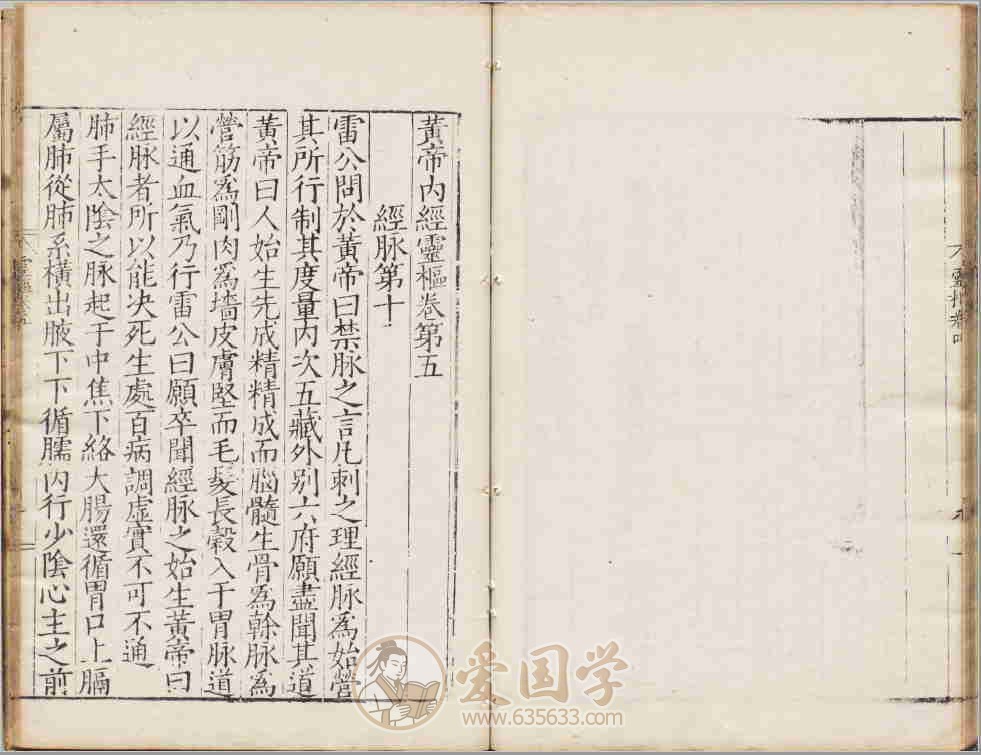 黃帝內經靈樞卷第五
經脉第十
雷公問於黃帝曰禁脉之言凡刺之理經脉爲始營
其所行制其度量內次五藏外别六府願盡聞其道
黃帝曰人始生先成精精成而腦髓生骨爲幹脉爲
營筋爲剛肉爲墻皮膚堅而毛髮長穀入于胃脉道
以通血氣乃行雷公曰願卒聞經脉之始生黃帝曰
經脉者所以能决死生處百病調虛實不可不通
肺手太陰之脉起于中焦下絡大腸還循胃口上膈
屬肺從肺系橫出腋下下循臑內行少陰心主之前
爱国学
www.635633.com